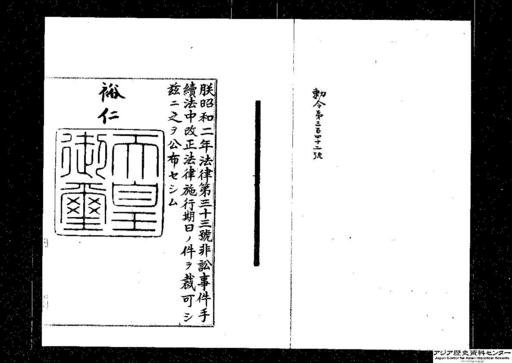 勅令第三百四十二號
朕昭和二年法律第三十三號非訟事件手
續法中改正法律施行期日ノ件ヲ裁可シ
茲ニ之ヲ公布セシム
裕仁
天皇
御璽
アジア歴史資料センター
Japan Center for Asian Historical Records